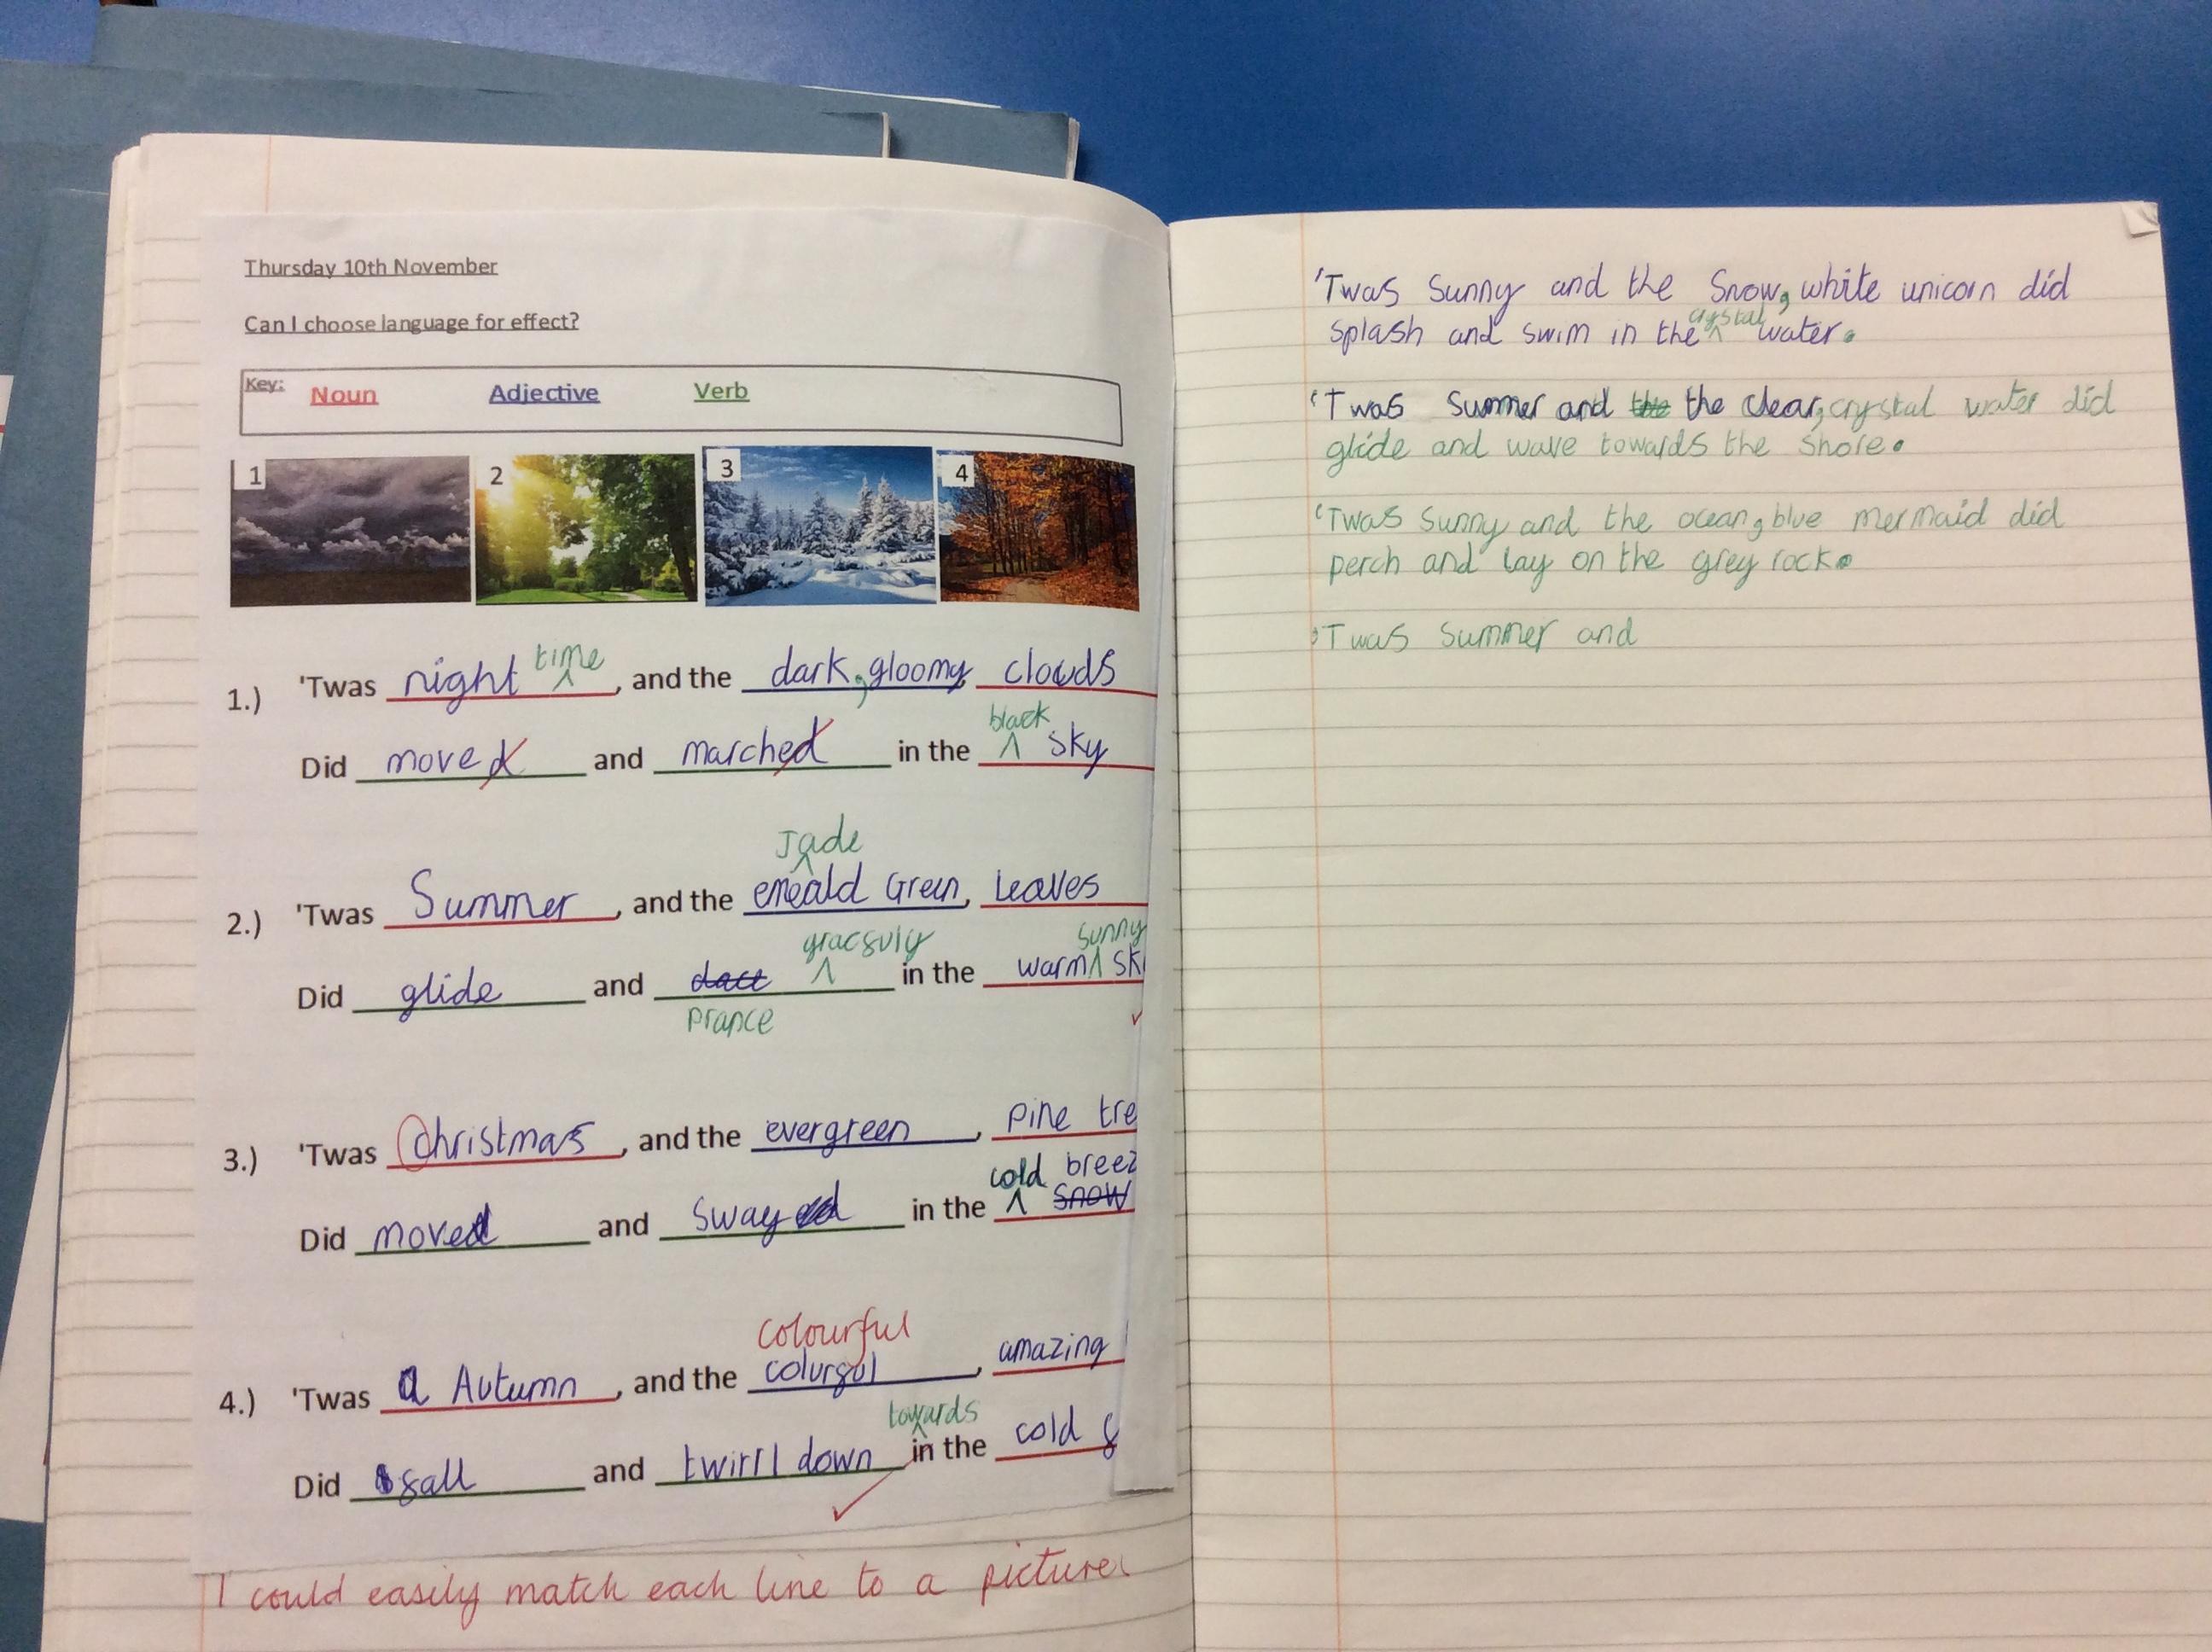 Thursday 10th November
Can I choose language for effect?
Key: Noun Adjective Verb
1 2 3 4
time
1.) 'Twas night ^ , and the dark, gloomy clouds
black
Did moved and marched in the ^ sky
Jade
2.) 'Twas Summer , and the emeald Green, Leaves
gracsuly sunny
Did glide and ^ in the warm ^ sk
prance
3.) 'Twas Christmas , and the evergreen , pine tre
cold breez
Did moved and sway in the ^ snow
colourful
4.) 'Twas a Autumn , and the colursul , amazing
towards
Did sall and twirrl down in the cold
I could easily match each line to a picture.
'Twas Sunny and the Snow, white unicorn did
crystal
splash and swim in the ^ water.
'Twas Summer and the the clear, crystal water did
glide and wave towards the shore.
'Twas Sunny and the ocean, blue mermaid did
perch and lay on the grey rock.
'Twas Summer and